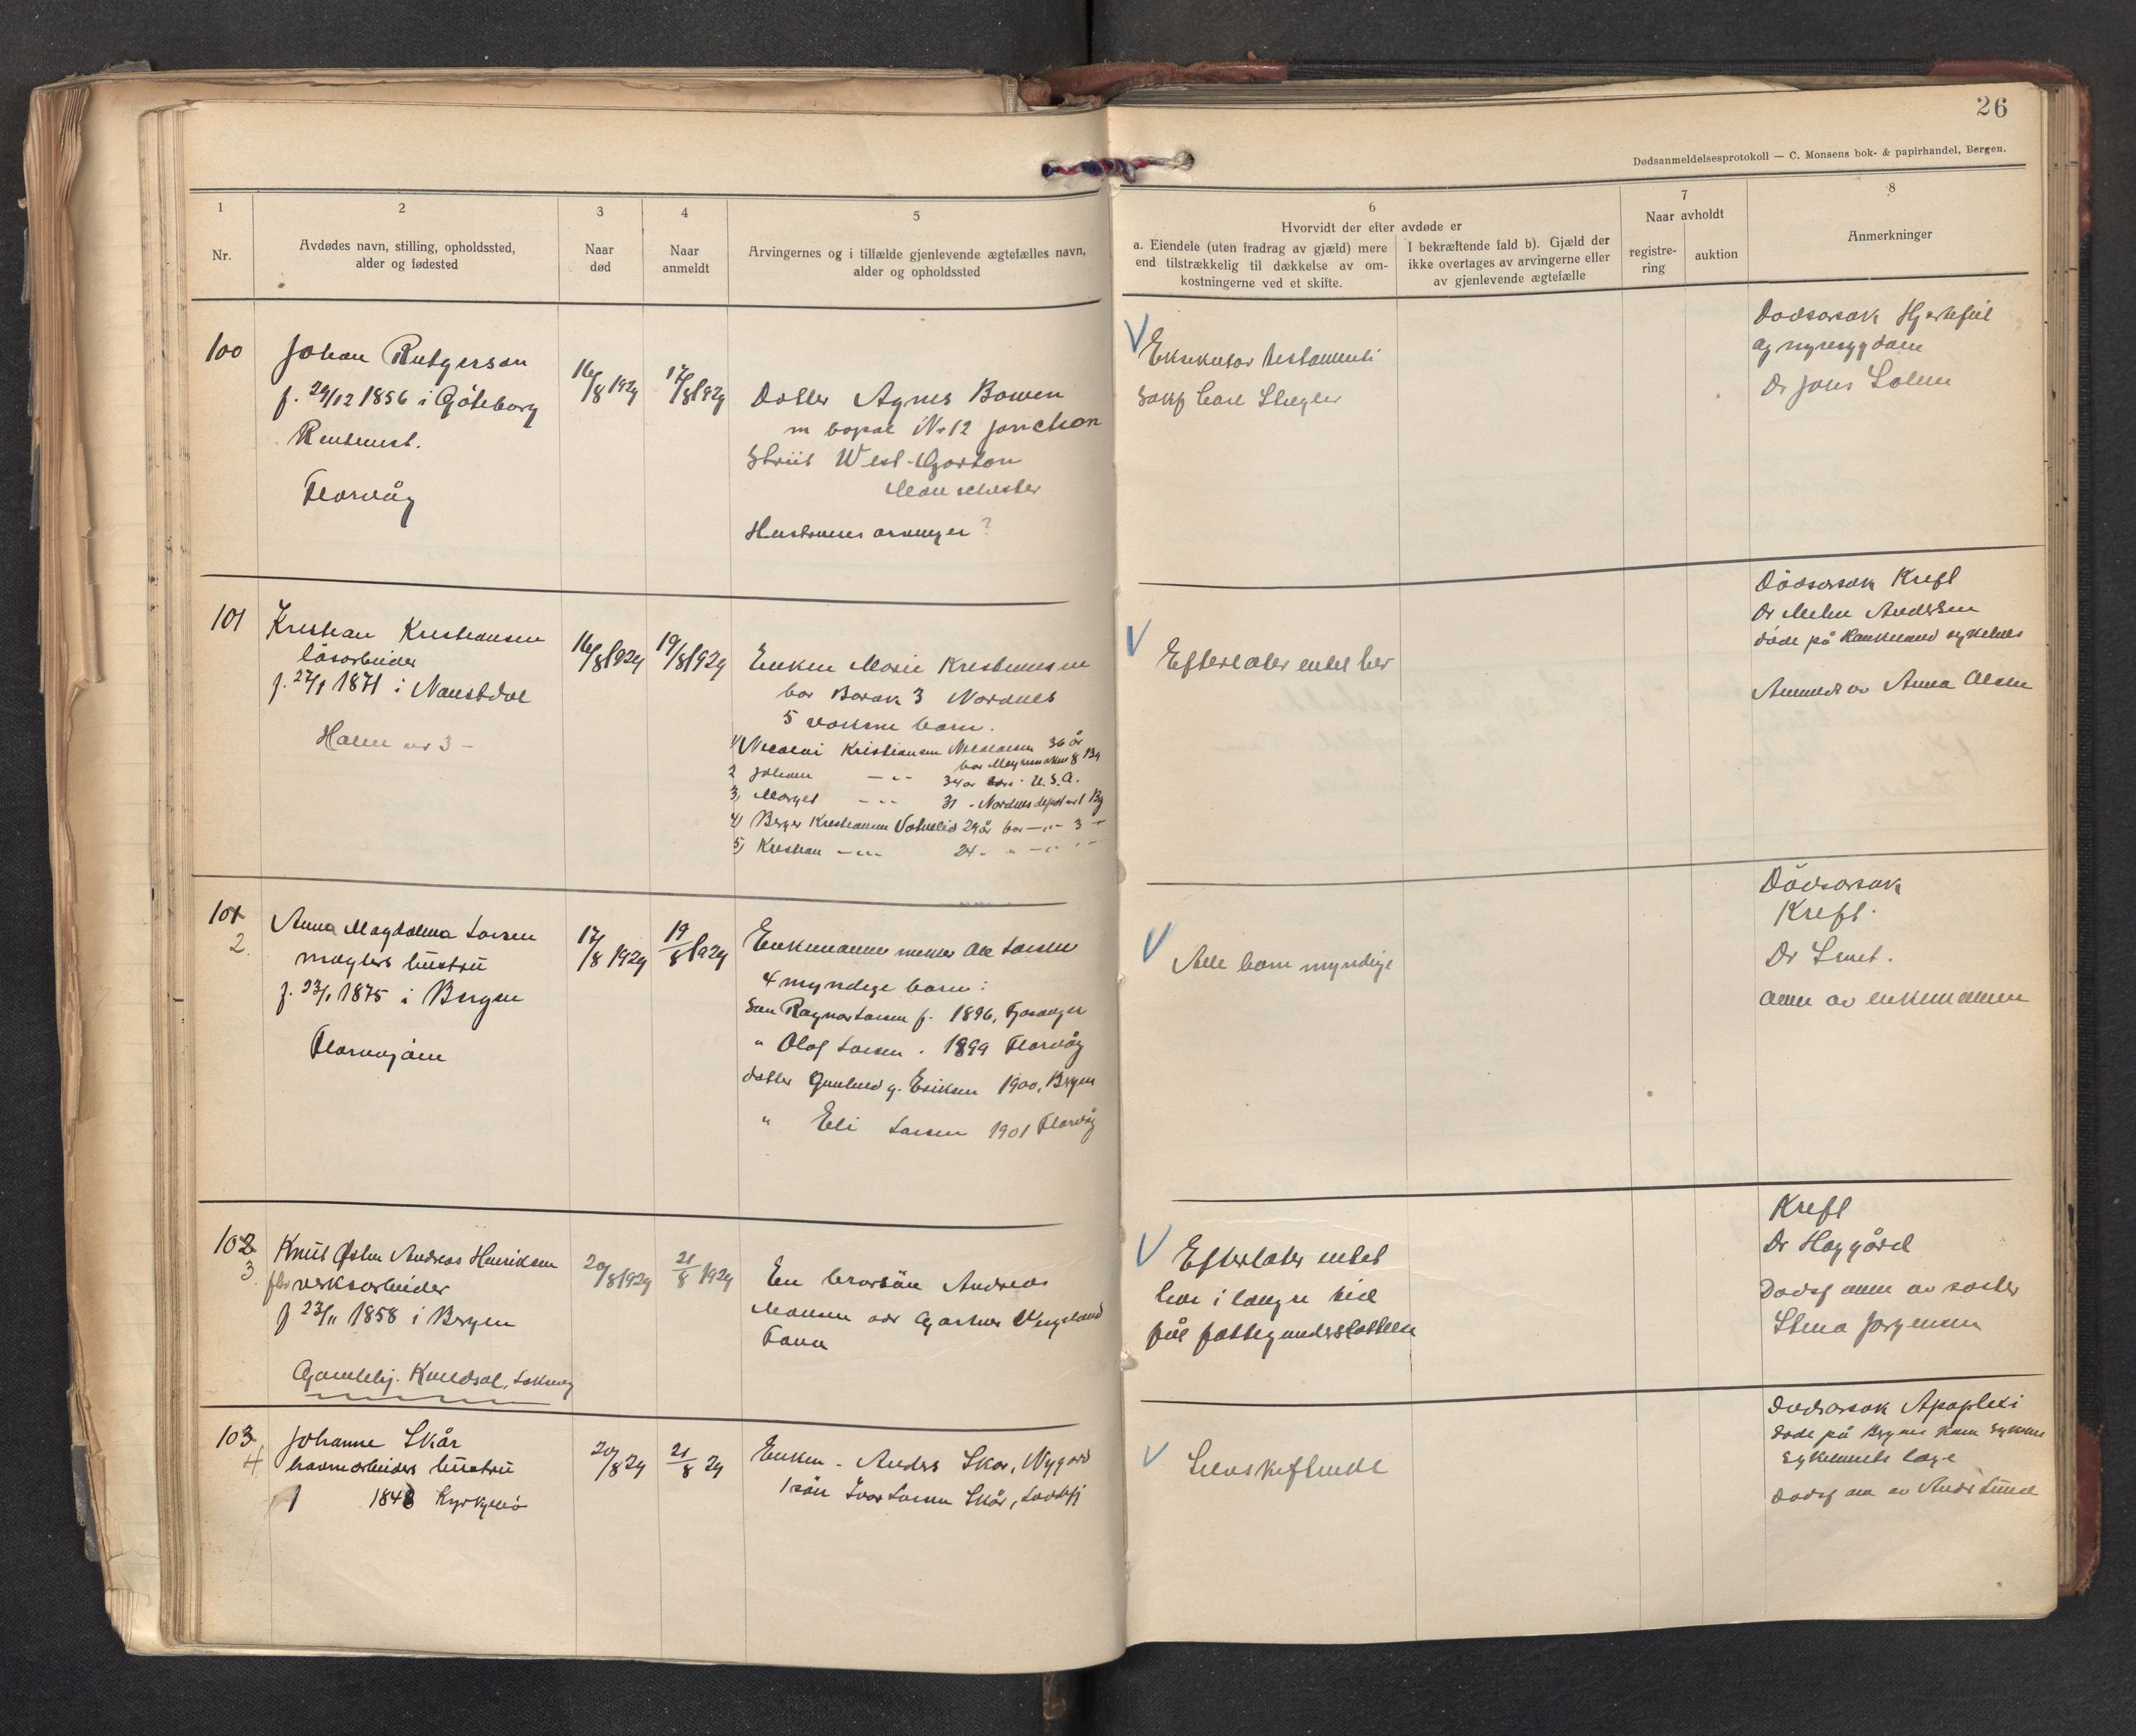 26
Dødsanmeldelsesprotokoll — C. Monsens bok- & papirhandel, Bergen.
1
Nr.
2
Avdødes navn, stilling, opholdssted,
alder og fødested
3
Naar
død
4
Naar
anmeldt
5
Arvingernes og i tilfælde gjenlevende ægtefælles navn,
alder og opholdssted
6
Hvorvidt der efter avdøde er
a. Eiendele (uten fradrag av gjæld) mere
end tilstrækkelig til dækkelse av om-
kostningerne ved et skifte.
I bekræftende fald b). Gjæld der
ikke overtages av arvingerne eller
av gjenlevende ægtefælle
7
Naar avholdt
registre-
ring
auktion
8
Anmerkninger
100
Johan Rutgerson
f. 29/12 1856 i Göteborg
Rentenist.
Florvåg
16/8 1929
17/8 1929
Datter Agnes Bowen
m bopæl Nr 12 Jonction
Striit West-Gorton
Manschester
Hustruens arvinger?
V Eksekutor testamenti
Sakf Carl Stegler
Dødsorsak Hjertefeil
og nyresygdom
Dr Jons Solem
101
Kristian Kristiansen
låsarbeider
f. 27/1 1871 i Naustdal
Holen nr 3 -
16/8 1929
19/8 1929
Enken Marie Kristiansen
bor Barak 3 Nordnes
5 voksne barn.
1) Nicolai Kristiansen 36 år
2 Johan -"- 34 år bor i U.S.A.
3) Margit -"- 31 - Nordnes 1 Bg
4) Berger Kristiansen Vatnelid 29 år bor -"- 3 -"-
5) Kristian -"- 24 - " -"-
V Efterlater intet her
Dödsorsak Kreft
Dr Andersen
döde på Haukeland sykehus
Anmeldt av Anna Olsen
101
2.
Anna Magdalena Larsen
mæglers hustru
f. 23/1 1875 i Bergen
Florvågöen
17/8 1929
19/8 1929
Enkemannen mekler Ole Larsen
4 myndige barn:
Sön Ragnar Larsen f. 1896, Fjøsanger
" Olaf Larsen . 1899 Florvåg
datter Gunhild g. Eriksen 1900, Bergen
" Eli Larsen 1901 Florvåg
V Alle barn myndige
Dödsorsak
Kreft.
Dr Smit.
anm av enkemannen
102
3.
Knut Østen Andreas Henriksen
fbr verksarbeider
f 23/11 1858 i Bergen
Gamlehj. Knudsal, Laksevåg
20/8 1929
21/8 1929
En brorsön Andreas
Monsen adr Gartner Vengeland
Fana
V Efterlater intet
har i længre tid
fåt fattigunderstöttelse
Kreft
Dr Haggård
Dødsf anm av søster
Stina Jørgensen
103
4
Johanne Skår
havnearbeiders hustru
f 1848 Kyrkjebø
20/8 29
21/8 29
Enkem. Anders Skår, Nygård
1 sön Ivar Larsen Skår,
V Selvskiftende
Dødsorsak Apopleksi
døde på Bergens Kom Sykehus
Sykehusets læge
Dødsf anm av Andr Lund